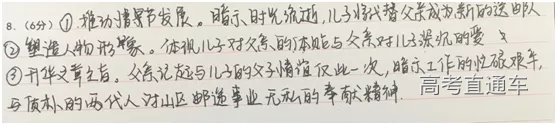 8.(6分)①推动情节发展。暗示时光流逝,儿子将代替父亲成为新的送邮人
②塑造人物形象。体现儿子对父亲的体贴与父亲对儿子深沉的爱
③升华文章主旨。父亲记忆与儿子的父子情谊仅此一次,暗示工作的忙碌艰辛,
与质朴的两代人对山区邮递事业无私的奉献精神.
高考直通车